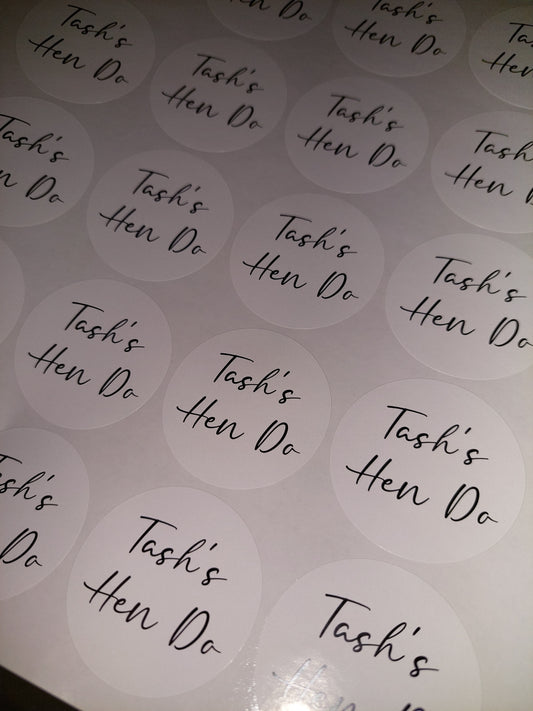 Tash's
Hen Do
Hen Do
Tash's
Hen Do
Ta
Hen
Tash's
Hen Do
Tash's
Hen Do
Tash
Hen D
Tash's
n Do
Tash's
Hen Do
Tash's
Hen Do
Tash's
Hen Do
Tash's
Hen Do
Tash's
Hen Do
Tash's
Hen Do
ash's
Do
Tash's
Hen Do
Tash's